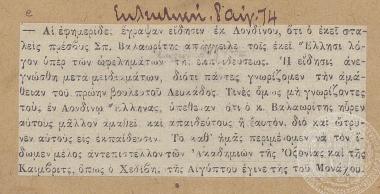 Εκλεκτική, 8 αύγ. 74
— Αἱ ἐφημερίδες ἔγραψαν εἴδησιν ἐκ Λονδίνου, ὅτι ὁ ἐκεῖ στα-
λεὶς πρέσβυς Σπ. Βαλαωρίτης ἀπήγγειλε τοῖς ἐκεῖ Ἕλλησι λό-
γον ὑπὲρ τῶν ὠφελημάτων τῆς ἐκπαιδεύσεως. Ἡ εἴδησις ἀνε-
γνώσθη μετὰ μειδιαμάτων, διότι πάντες γνωρίζομεν τὴν ἀμά-
θειαν τοῦ πρώην βουλευτοῦ Λευκάδος. Τινὲς ὅμως μὴ γνωρίζοντες
τοὺς ἐν Λονδίνῳ Ἕλληνας, ὑπέθεσαν ὅτι ὁ κ. Βαλαωρίτης ηὗρεν
αὐτοὺς μᾶλλον ἀμαθεῖς καὶ ἀπαιδεύτους ἢ ἑαυτόν, διὸ καὶ ὤτρυ-
νεν αὐτοὺς εἰς ἐκπαίδευσιν. Τὸ καθ' ἡμᾶς περιμένομεν νὰ τὸν
ἴδωμεν μέλος ἀντεπιστέλλον τῶν Ἀκαδημιῶν τῆς Ὀξονίας καὶ τῆς
Καιμβρίτζ, ὅπως ὁ Χεδίβης τῆς Αἰγύπτου ἔγινε τῆς τοῦ Μονάχου.